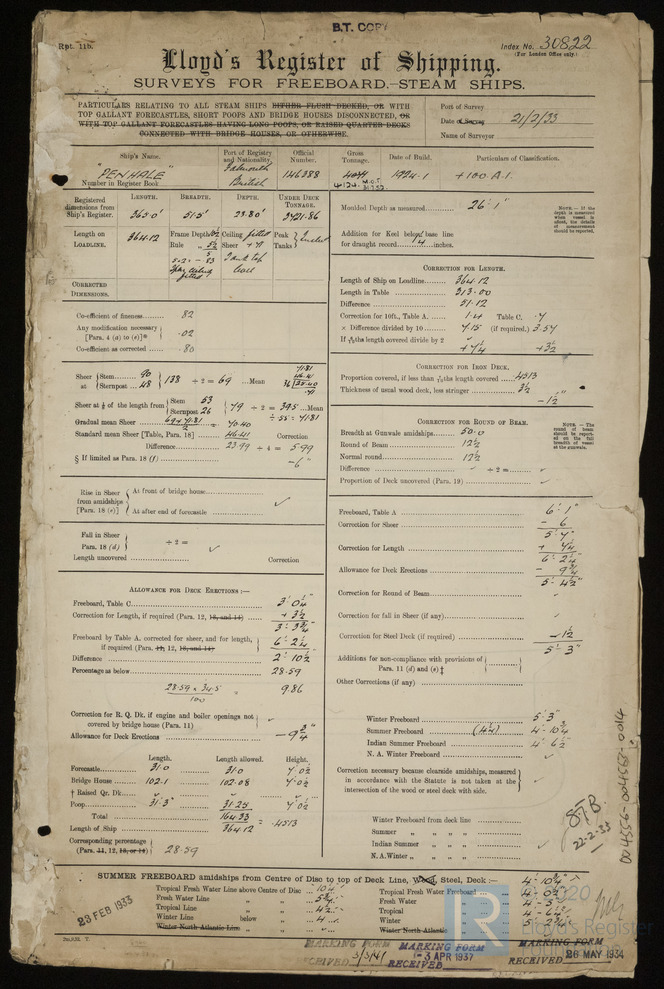 B.T. COPY
Rpt. 11b.
Index No. 30822
(For London Office only.)
Lloyd's Register of Shipping.
SURVEYS FOR FREEBOARD.—STEAM SHIPS.
PARTICULARS RELATING TO ALL STEAM SHIPS EITHER FLUSH DECKED, OR WITH
TOP GALLANT FORECASTLES, SHORT POOPS AND BRIDGE HOUSES DISCONNECTED, OR
WITH TOP GALLANT FORECASTLES HAVING LONG POOPS, OR RAISED QUARTER DECKS
CONNECTED WITH BRIDGE HOUSES, OR OTHERWISE.
Port of Survey
Date of Survey 21/2/33
Name of Surveyor
Ship's Name. Port of Registry and Nationality. Official Number. Gross Tonnage. Date of Build. Particulars of Classification.
"PENHALE" Falmouth British 146388 4071 1924.1 +100.A.1.
4124 M.O.T.
Number in Register Book
Registered dimensions from Ship's Register. LENGTH. BREADTH. DEPTH. UNDER DECK TONNAGE.
363.0' 51.5' 23.80' 3721.86
Length on LOADLINE. 364.12 Frame Depth Rule Ceiling fitted Sheer Tank top Peak Tanks
CORRECTED DIMENSIONS.
Moulded Depth as measured 26' 1"
NOTE.—If the depth is measured when vessel is afloat, the details of measurement should be reported.
Addition for Keel below base line
for draught record 1/4 inches.
Co-efficient of fineness .82
Any modification necessary
[Para. 4 (a) to (e)]* .02
Co-efficient as corrected .80
CORRECTION FOR LENGTH.
Length of Ship on Loadline 364.12
Length in Table 313.00
Difference 51.12
Correction for 10ft., Table A. 1.4 Table C. .7
× Difference divided by 10 7.15 (if required.) 3.57
If 6/10ths length covered divide by 2
+7 1/4 +3 1/2
Sheer at Stem 90 Sternpost 48 138 ÷ 2 = 69 Mean
Sheer at 1/8 of the length from Stem 53 Sternpost 26 79 ÷ 2 = 39.5 Mean
÷ .55 = 71.81
Gradual mean Sheer 69+71.81 / 2 = 70.40
Standard mean Sheer [Table, Para. 18] 46.41 Correction
Difference 23.99 ÷ 4 = 5.99
§ If limited as Para. 18 (f) -6"
CORRECTION FOR IRON DECK.
Proportion covered, if less than 7/10ths length covered .4513
Thickness of usual wood deck, less stringer 3 1/2
-1 1/2"
CORRECTION FOR ROUND OF BEAM.
Breadth at Gunwale amidships 50.0
Round of Beam 12 1/2
Normal round 12 1/2
Difference ÷ 2 =
Proportion of Deck uncovered (Para. 19)
NOTE.—The round of beam should be reported on the full breadth of vessel at the gunwale.
Rise in Sheer from amidships [Para. 18 (e)] At front of bridge house
At after end of forecastle
Fall in Sheer Para. 18 (d) ÷ 2 =
Length uncovered Correction
Freeboard, Table A 6' 1"
Correction for Sheer - 6
5' 7"
Correction for Length + 7 1/4
6' 2 1/4
Allowance for Deck Erections - 9 3/4
5' 4 1/2"
Correction for Round of Beam
Correction for fall in Sheer (if any)
Correction for Steel Deck (if required) - 1 1/2
5' 3"
Additions for non-compliance with provisions of Para. 11 (d) and (e) ‡
Other Corrections (if any)
ALLOWANCE FOR DECK ERECTIONS:—
Freeboard, Table C 3' 0 1/4"
Correction for Length, if required (Para. 12, 13, and 14) + 3 1/2
3' 3 3/4"
Freeboard by Table A. corrected for sheer, and for length, if required (Para. 11, 12, 13, and 14) 6' 2 1/4
Difference 2' 10 1/2
Percentage as below 28.59
28.59 × 34.5 / 100 = 9.86
Correction for R. Q. Dk. if engine and boiler openings not covered by bridge house (Para. 11)
Allowance for Deck Erections -9 3/4"
Length. Length allowed. Height.
Forecastle 31.0 31.0 7' 0 1/2
Bridge House 102.1 102.08 7' 0 1/2
† Raised Qr. Dk.
Poop 31.3 31.25 7' 0 1/2
Total 164.33
Length of Ship 364.12 = .4513
Corresponding percentage (Para. 11, 12, 13, or 14) 28.59
Winter Freeboard 5' 3"
Summer Freeboard (4 1/4) 4' 10 3/4
Indian Summer Freeboard 4' 6 1/2
N. A. Winter Freeboard
Correction necessary because clearside amidships, measured in accordance with the Statute is not taken at the intersection of the wood or steel deck with side.
Winter Freeboard from deck line
Summer " " " "
Indian Summer " " "
N. A. Winter " " "
22-2-33
004556-004563-0014
SUMMER FREEBOARD amidships from Centre of Disc to top of Deck Line, Wood, Steel, Deck:— 4' 10 3/4"
Tropical Fresh Water Line above Centre of Disc 10 1/4" Tropical Fresh Water Freeboard 4' 0 1/2"
Fresh Water Line " " 5 3/4 Fresh Water 4' 5"
Tropical Line " " 4 1/4 Tropical 4' 6 1/2
Winter Line below " 4 Winter 5' 2 3/4
Winter North Atlantic Line " " Winter North Atlantic
23 FEB 1933
MARKING FORM
RECEIVED 3/3/41
MARKING FORM
RECEIVED 3 APR 1937
MARKING FORM
RECEIVED 26 MAY 1934
2020
Lloyd's Register